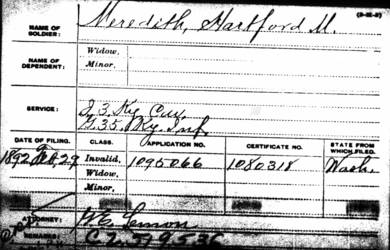 (3-28-)
NAME OF SOLDIER: Meredith, Hartford M.
NAME OF DEPENDENT: Widow,
Minor,
SERVICE: I. 3. Ky. Cav.
F. 35. Ky. Inf.
DATE OF FILING. CLASS. APPLICATION NO. CERTIFICATE NO. STATE FROM WHICH FILED.
1892 29 Invalid, 1095066 1080318 Wash.
Widow,
Minor,
ATTORNEY: Lemon
REMARKS: C 2.579.536